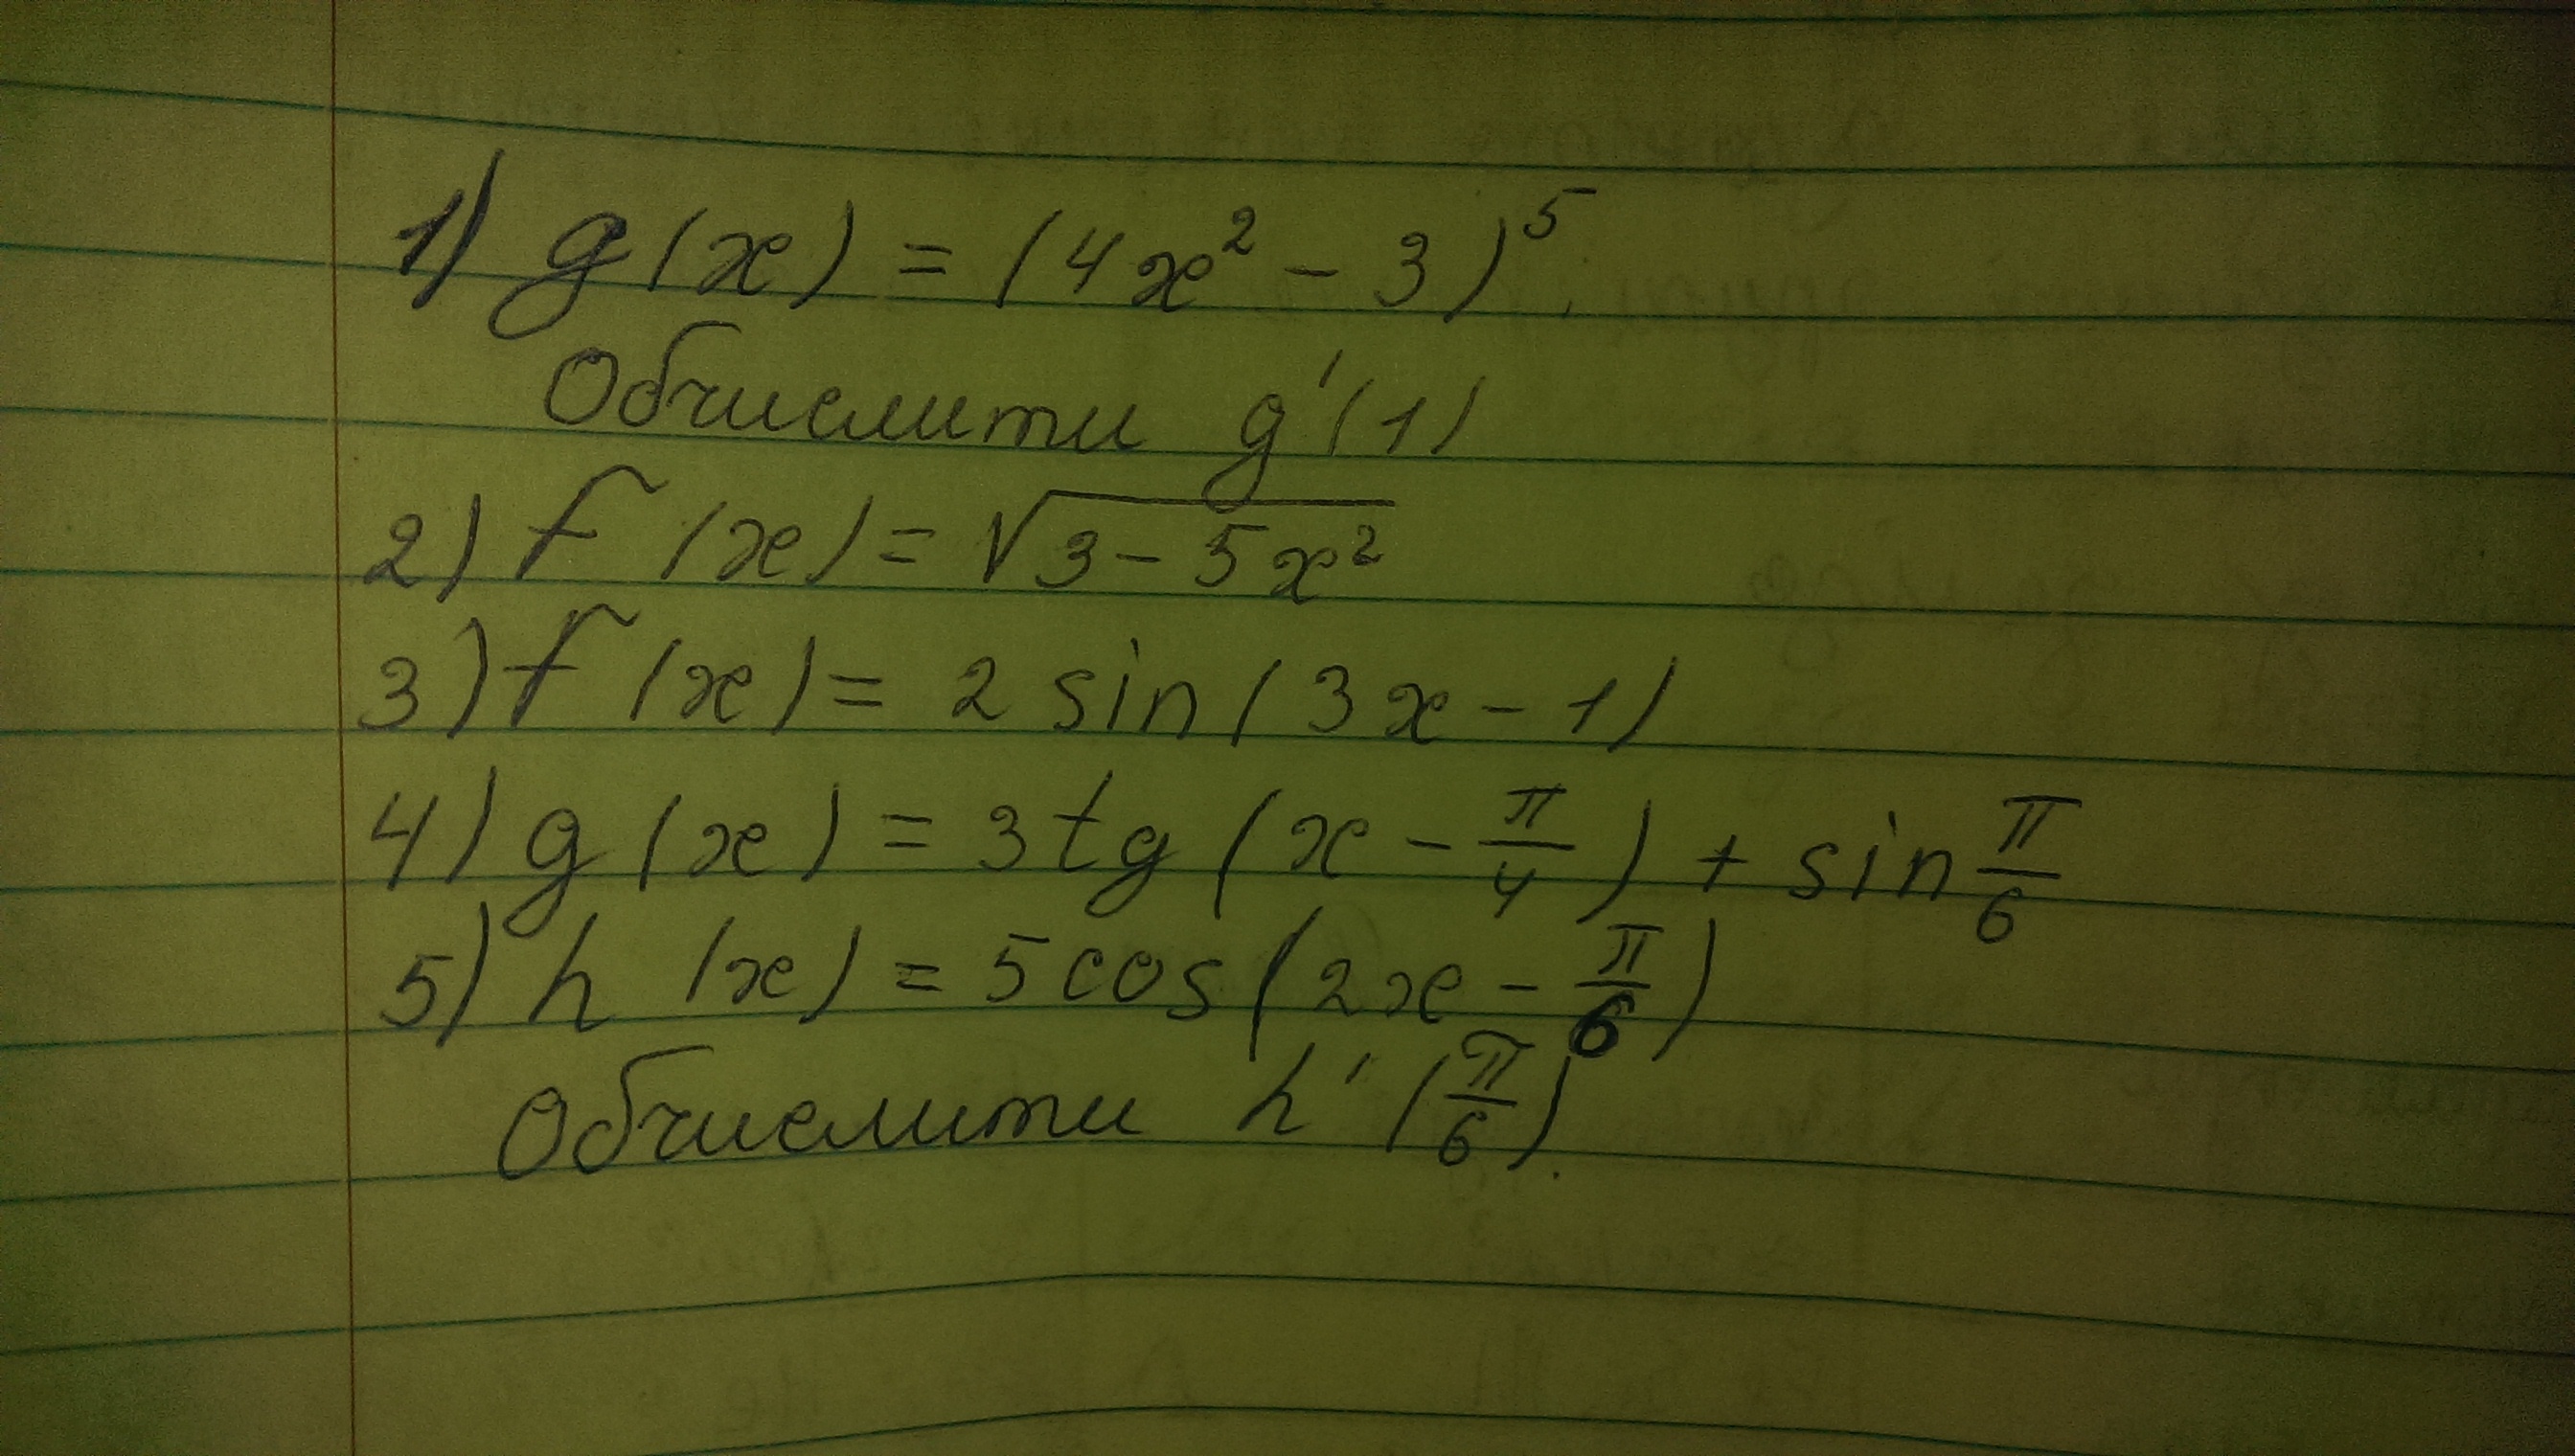 1) g(x) = (4x² - 3)⁵;
Обчислити g'(1)
2) f(x) = √(3 - 5x²)
3) f(x) = 2 sin(3x - 1)
4) g(x) = 3tg(x - π/4) + sin π/6
5) h(x) = 5cos(2x - π/6)
Обчислити h'(π/6).